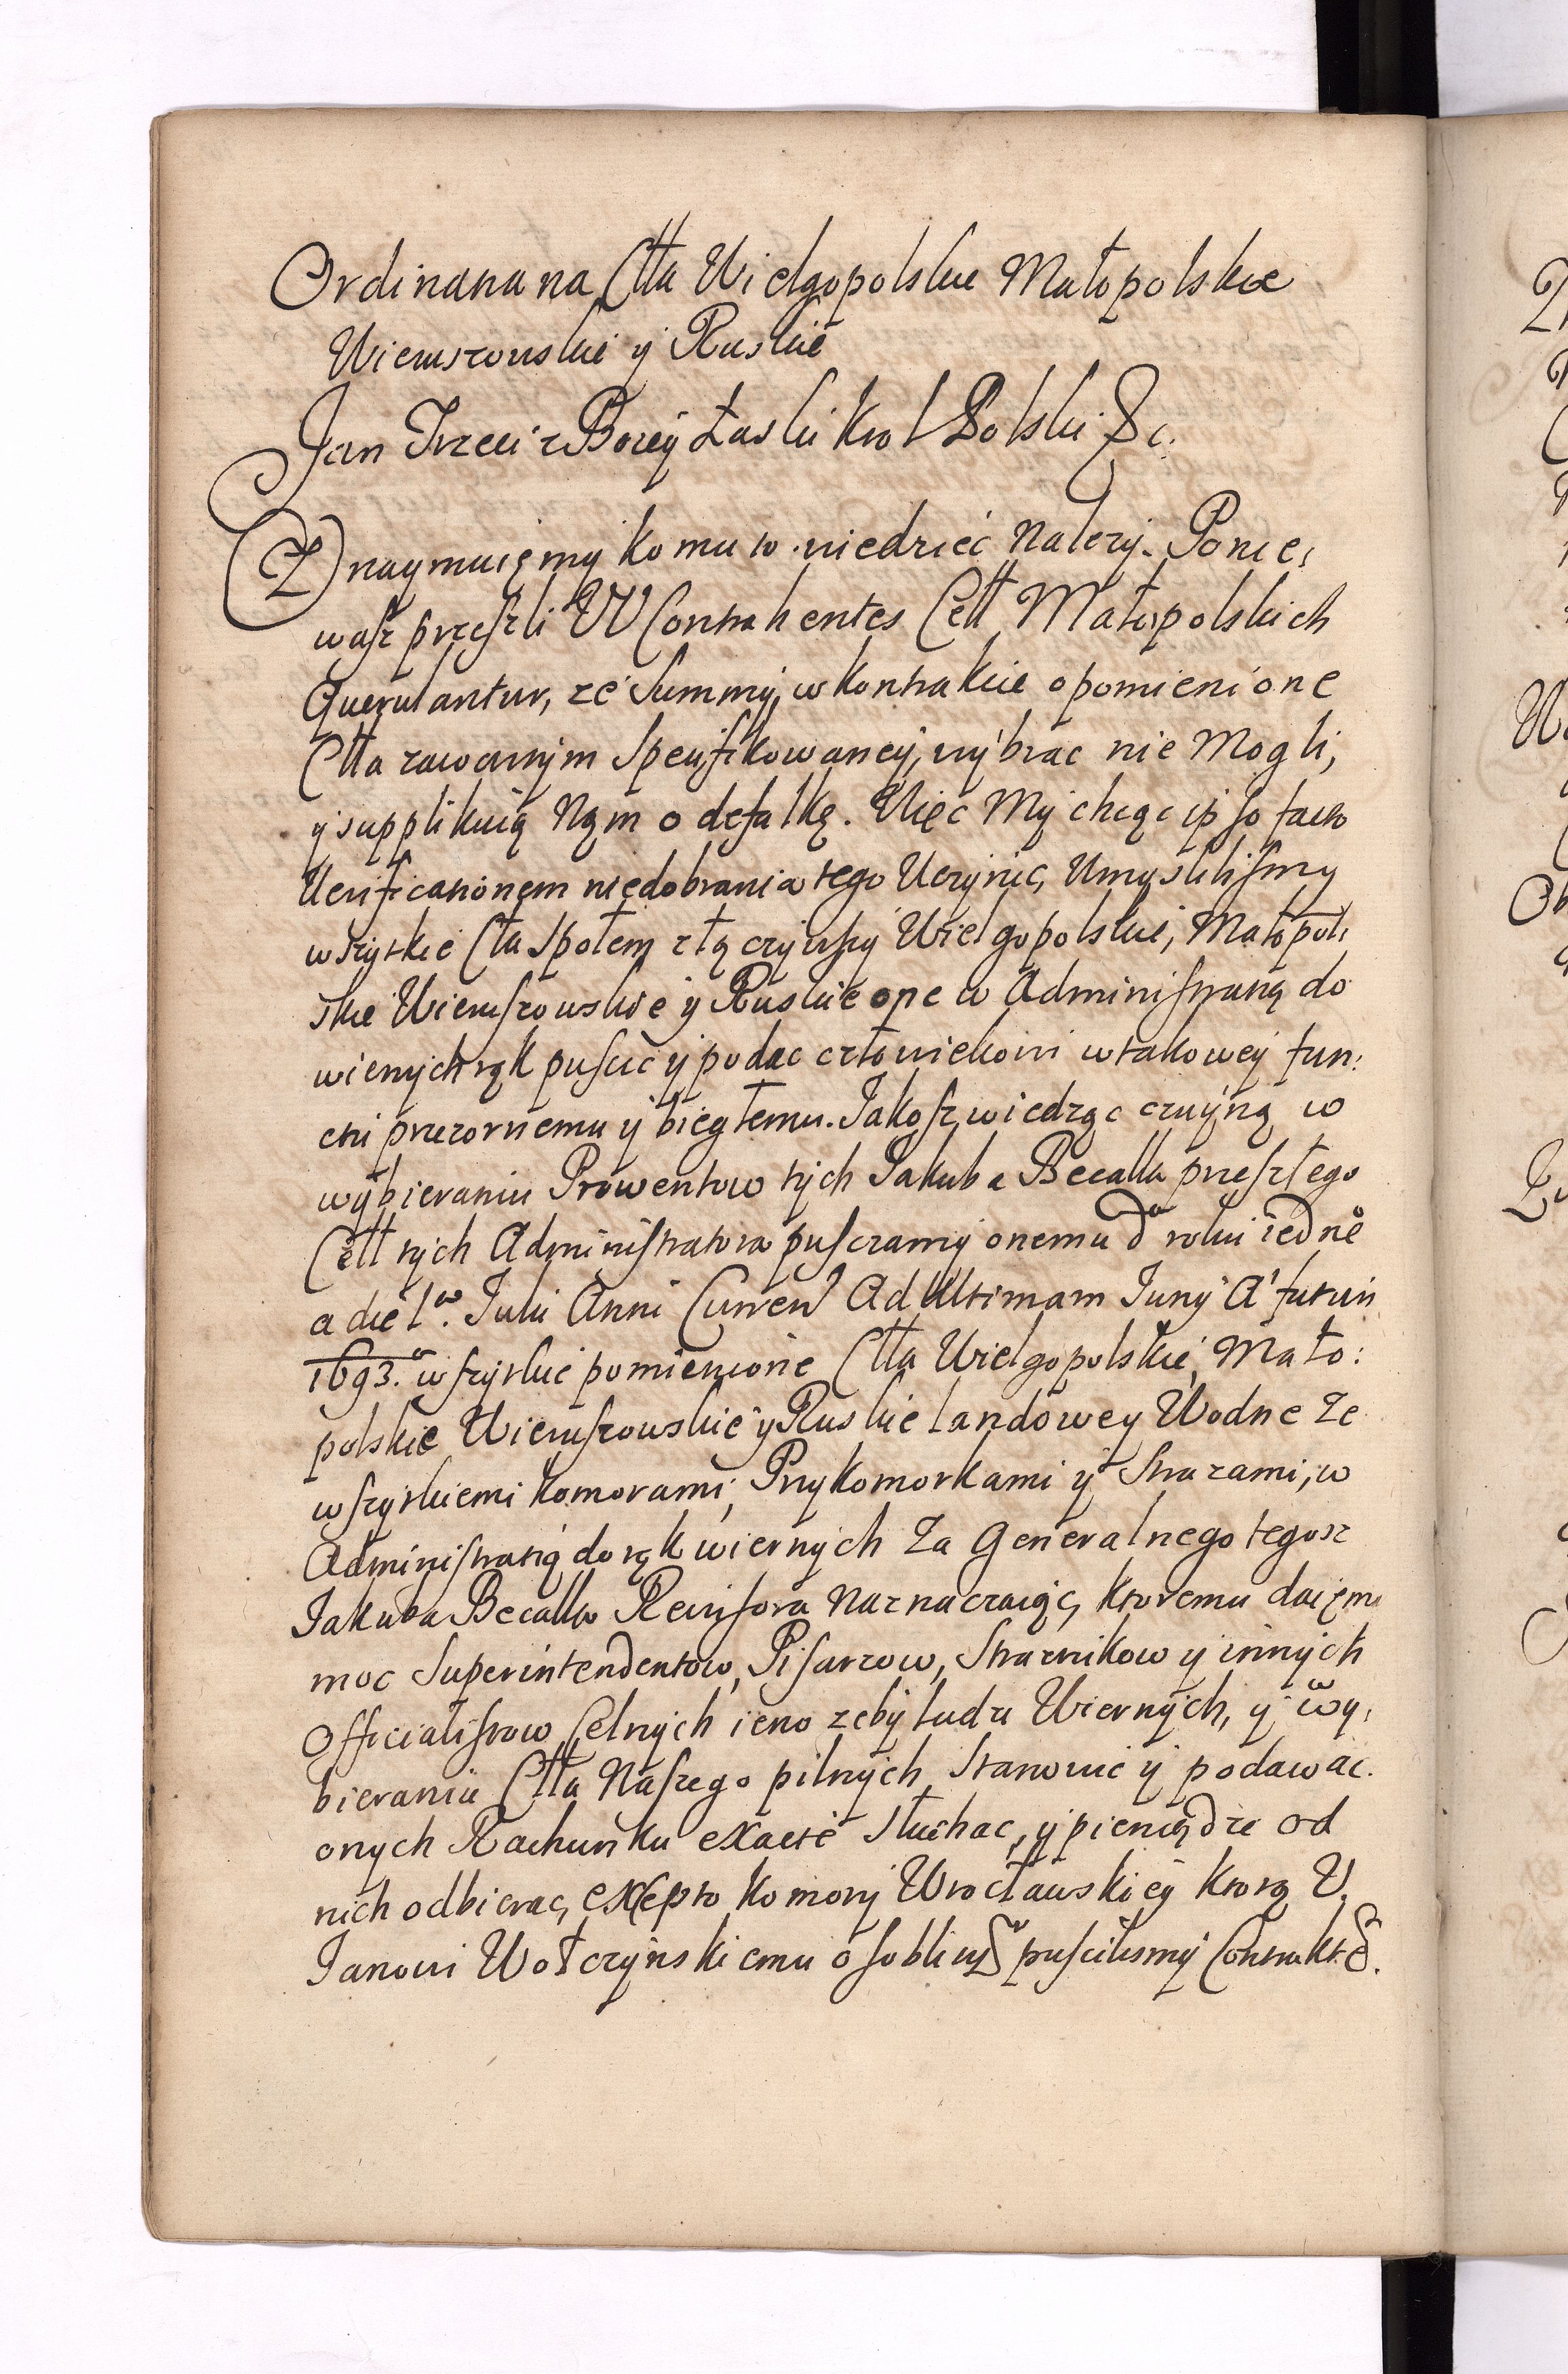 Ordinacia na Ctta Wielgopolskie Małopolskie
Wieruszowskie y Ruskie
Jan Trzeci z Bożey Łaski Krol Polski &c.
Znaymuięmy komu to wiedzieć należy. Ponie,
wasz przeszli W Contrahentes Cełł Małopolskich
Querulantur, że Summy, w kontrakcie o pomienione
Ctta zawartym Specifikowaney, wybrac nie mogli,
y supplikuią Nąm o defalkę. Więc My chcąc ipso facto
Verificationem niedobrania tego Uczynic, Umyslilismy
wszytkie Cła społem złączywszy Wielgopolskie, Małopol,
skie Wieruszowskie y Ruskie one w Administratią do
wiernych rąk puscic y podac człowiekowi w takowey fun:
ctii przezornemu y biegłemu. Jakosz wiedząc czuyną w
wybieraniu Prowentow tych Jakuba Becalla przeszłego
Cełł tych Administratora puszczamy onemu do roku iedne
a die 1ma. Julii Anni Curren Ad Ultimam Juny A' futuri
1693. wszytkie pomienione Ctta Wielgopolskie, Mało:
polskie Wieruszowskie y Ruskie landowe y Wodne ze
wszytkiemi komorami, Przykomorkami y Strażami, w
Administratią do rąk wiernych za Generalnego tegosz
Jakuba Becalla Rewisora naznaczaiąc, ktoremu daięmy
moc Superintendentow, Pisarzow, Strażnikow y innych
Officialistow Celnych ieno żeby ludzi Wiernych, y w wy,
bieraniu Ctta Naszego pilnych, Stanowic y podawac.
onych Rachunku exacte słuchac, y pieniądze od
nich odbierac, excepto komory Wrocławskiey ktorą U.
Janowi Wołczynskiemu osobliwym puscilismy Contraktē.